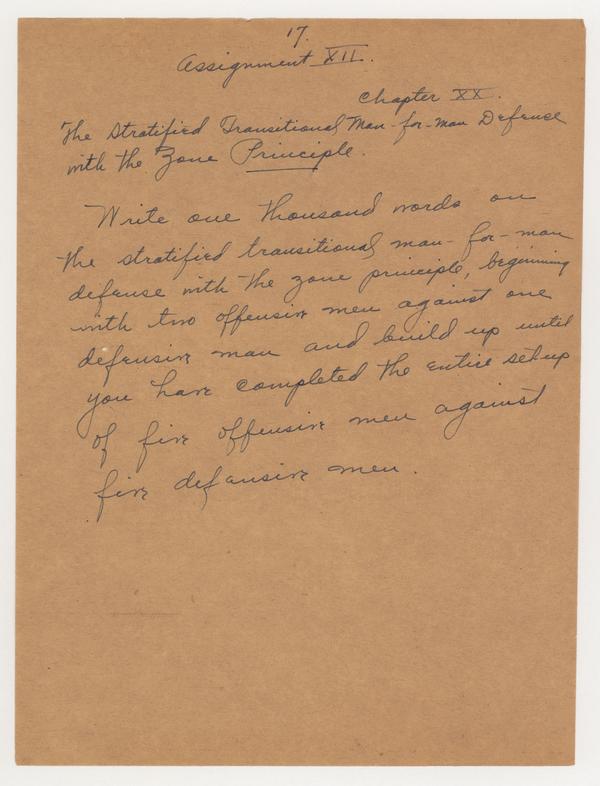 17.
Assignment XII.
Chapter XX.
The Stratified Transitional Man-for-man Defense
with the Zone Principle.
Write one thousand words on
the stratified transitional man-for-man
defense with the zone principle, beginning
with two offensive men against one
defensive man and build up until
you have completed the entire setup
of five offensive men against
five defensive men.